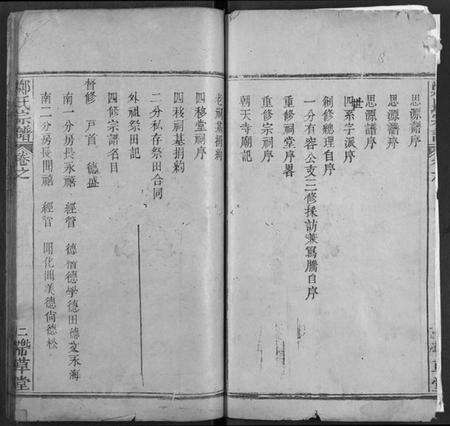 思源譜序
思源譜序
思源譜序
四系字派序
創修總理自序
一分有容公支三修採訪兼謄自序
重修祠堂序畧
重修宗祠序
朝天寺廟記
老祠基捐約
四移堂祠序
四移祠基捐約
二分私存祭田合同
外祖祭田記
四修宗譜名目
督修 戸首 德盛
南一分房長永禧 經管 德修德學德田德文永海
南二分房長開禧 經管 開化開美德尚德松
鄭氏宗譜 卷之
二 帶草堂